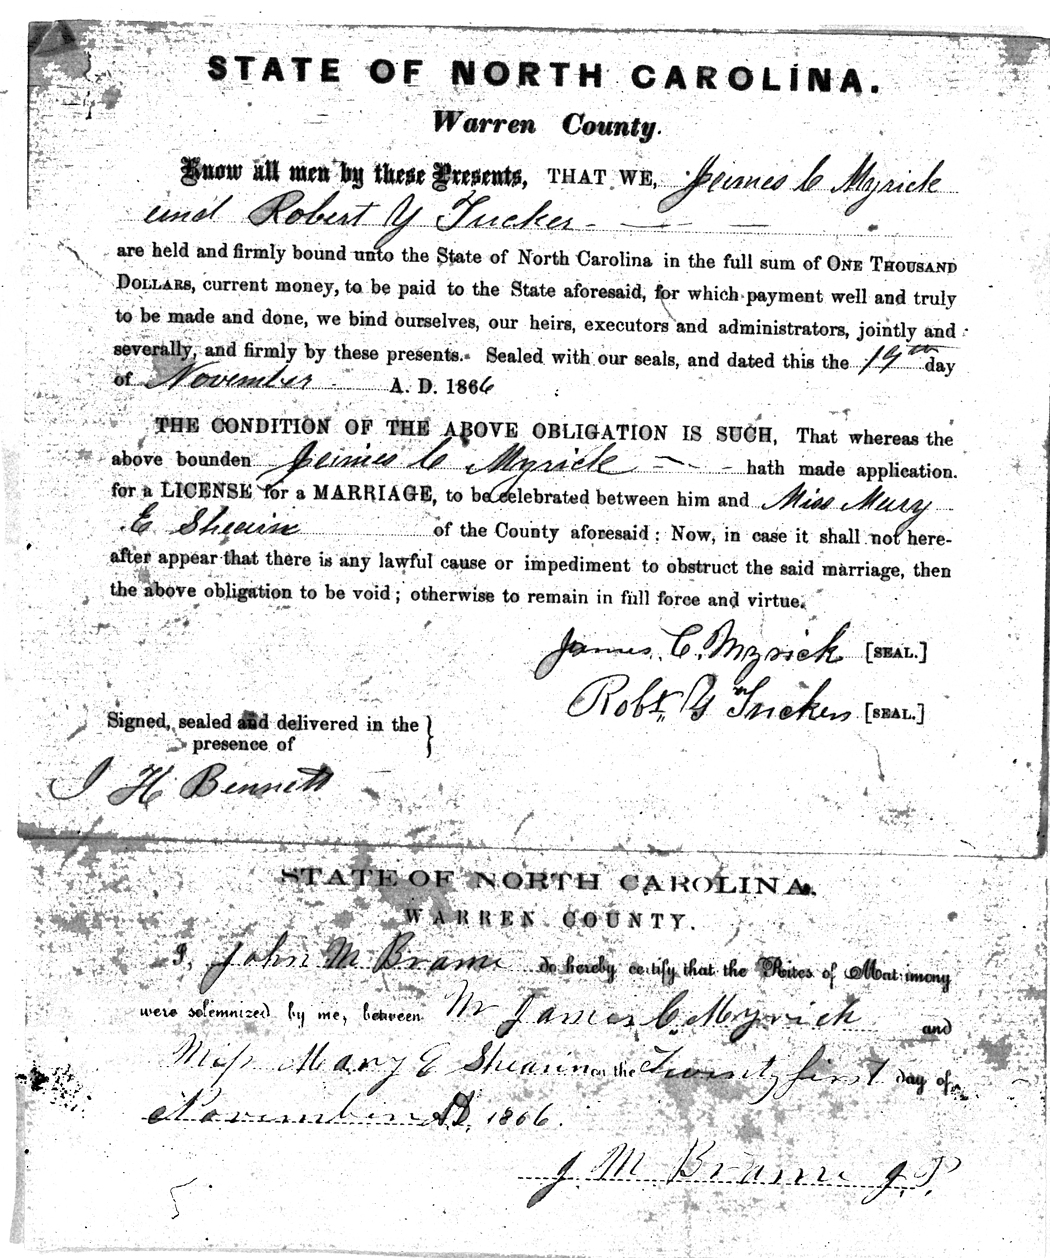 STATE OF NORTH CAROLINA.
Warren County.
Know all men by these Presents, THAT WE, James C Myrick
and Robert Y Tucker
are held and firmly bound unto the State of North Carolina in the full sum of ONE THOUSAND
DOLLARS, current money, to be paid to the State aforesaid, for which payment well and truly
to be made and done, we bind ourselves, our heirs, executors and administrators, jointly and
severally, and firmly by these presents. Sealed with our seals, and dated this the 19th day
of November A. D. 1866
THE CONDITION OF THE ABOVE OBLIGATION IS SUCH, That whereas the
above bounden James C Myrick hath made application.
for a LICENSE for a MARRIAGE, to be celebrated between him and Miss Mary
E Shearin of the County aforesaid: Now, in case it shall not here-
after appear that there is any lawful cause or impediment to obstruct the said marriage, then
the above obligation to be void; otherwise to remain in full force and virtue.
James. C. Myrick [SEAL.]
Robt. Y Tucker [SEAL.]
Signed, sealed and delivered in the }
presence of
J H Bennett
STATE OF NORTH CAROLINA.
WARREN COUNTY.
I, John M Brame do hereby certify that the Rites of Matrimony
were solemnized by me, between Mr James C. Myrick and
Miss Mary E Shearin on the Twenty first day of
November AD, 1866.
J M Brame J.P.